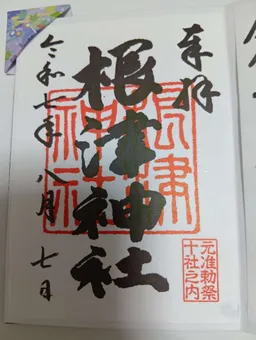 奉拝
根津神社
令和七年八月七日
根津神社
元准勅祭
十社之内